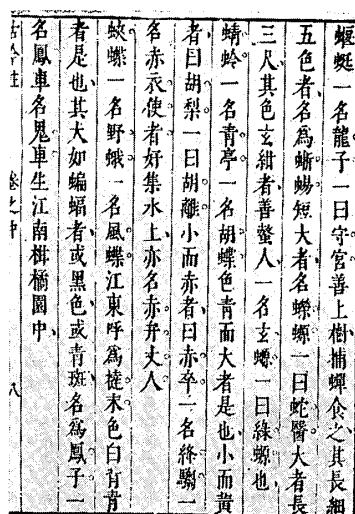 蝘蜓一名龍子一曰守宮善上樹捕蟬食之其長細
五色者名為蜥蜴短大者名蠑螈一曰蛇醫大者長
三尺其色玄紺者善螫人一名玄螈一曰綠螈也
蜻蛉一名青亭一名胡蝶色青而大者是也小而黃
者曰胡梨一曰胡離小而赤者曰赤卒一名絳騶一
名赤衣使者好集水上亦名赤弁丈人
蛺蝶一名野蛾一名風蝶江東呼為撻末色白背青
者是也其大如蝙蝠者或黑色或青斑名為鳳子一
名鳳車名鬼車生江南柑橘園中
古今注 卷之中 八